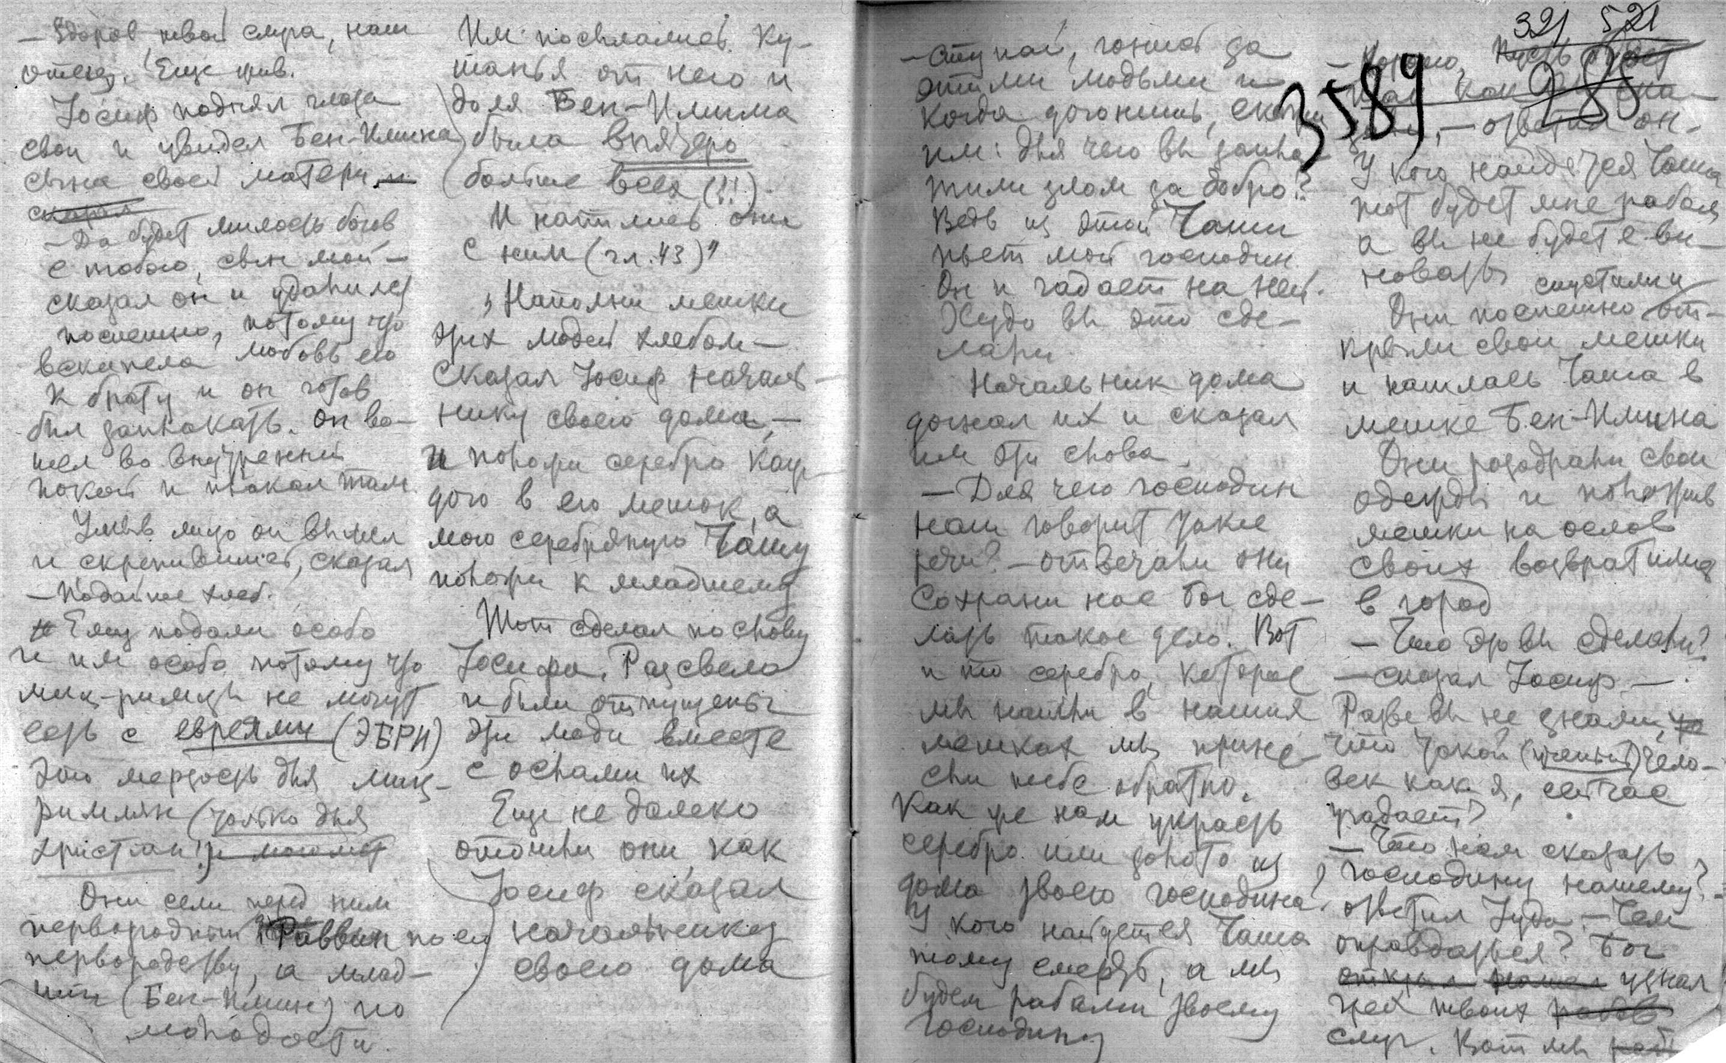 — Здоров твой слуга, наш
отец. Еще жив.
Иосиф поднял глаза
свои и увидел Бен-Имина
сына своей матери. — и
сказал
— Да будет милость богов
с тобою, сын мой —
сказал он и удалился
поспешно, потому что
вскипела любовь его
к брату и он готов
был заплакать. Он во-
шел во внутренний
покой и плакал там.
Умыв лицо он вышел
и скрепившись, сказал
— Подайте хлеб.
Ему подали особо
и им особо потому что
миц-римцы не могут
есть с евреями (ЭБРИ)
Это мерзость для миц-
римлян (только для
христиан!) и
Они сели перед ним
первородный Раввин по ем
первородству, а млад-
ший (Бен-Имин) по
молодости.
Им посылались ку-
шанья от него и
доля Бен-Имима
была впятеро
больше всех (!!).
И напились они
с ним (гл. 43)"
„Наполни мешки
этих людей хлебом —
сказал Иосиф началь-
нику своего дома, —
и положи серебро каж-
дого в его мешок, а
мою серебряную Чашу
положи к младшему
Тот сделал по слову
Иосифа. Рассвело
и были отпущены
эти люди вместе
с ослами их
Еще не далеко
отошли они, как
Иосиф сказал
начальнику
своего дома
— Ступай, гонись за
этими людьми и
когда догонишь, скажи
им: для чего вы запла-
тили злом за добро?
Ведь из этой Чаши
пьет мой господин
Он и гадает на ней.
Худо вы это сде-
лали
Начальник дома
догнал их и сказал
им эти слова.
— Для чего господин
наш говорит такие
речи? — отвечали они
Сохрани нас бог сде-
лать такое дело. Вот
и то серебро, которое
мы нашли в наших
мешках мы прине-
сли тебе обратно.
Как же нам украсть
серебро или золото из
дома твоего господина?
У кого найдется Чаша
тому смерть, а мы
будем рабами твоему
господину
321 521
3589
285
— Хорошо, пусть будет
так как вы ска-
зали, — ответил он. —
У кого найдется Чаша
тот будет мне рабом
а вы не будете ви-
новаты
спустили и
Они поспешно от-
крыли свои мешки
и нашлась Чаша в
мешке Бен-Имина
Они разодрали свои
одежды и положив
мешки на ослов
своих возвратились
в город
— Что это вы сделали?
— сказал Иосиф. —
Разве вы не знали,
что такой (ученый) чело-
век как я, сейчас
угадает?
— Что нам сказать
господину нашему? —
ответил Иуда. — Чем
оправдаться? Бог
открыл узнал
грех твоих рабов
слуг. Вот мы рабы